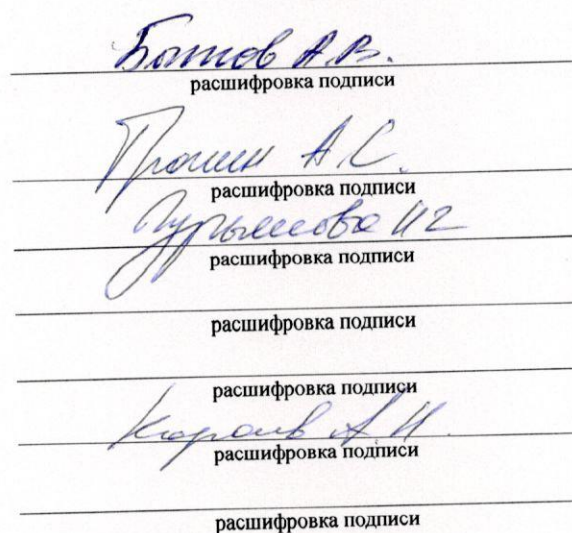 Батов А.В.
расшифровка подписи
Прошин А.С.
расшифровка подписи
расшифровка подписи
расшифровка подписи
расшифровка подписи
А.Н.
расшифровка подписи
расшифровка подписи